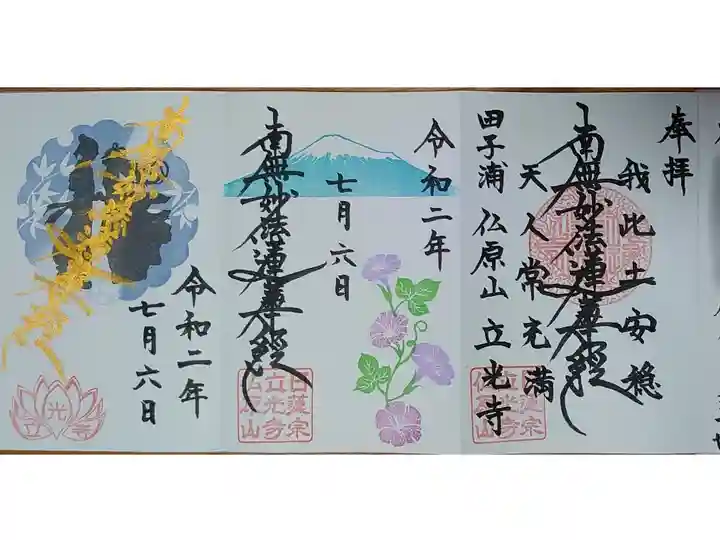 奉拝
我此土安穏
南無妙法蓮華経
天人常充満
田子浦 仏原山 立光寺
令和二年
七月六日
南無妙法蓮華経
日蓮宗
立光寺
仏原山
令和二年
七月六日
南無妙法蓮華経
立光寺